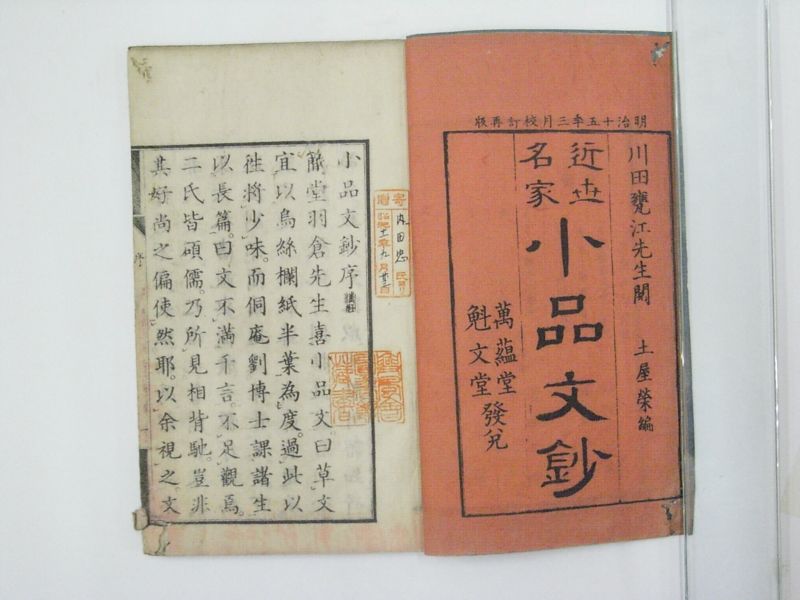 明治十五年三月校訂再版
川田甕江先生閱　土屋榮編
近世名家
小品文鈔
萬蘊堂
魁文堂
發兌
寄贈
內田忠氏ヨリ
小品文鈔序
簡堂羽倉先生喜小品文曰草文
宜以烏絲欄紙半葉為度過此以
往將少味而侗庵劉博士課諸生
以長篇曰文不滿千言不足觀焉
二氏皆碩儒乃所見相背馳豈非
其好尚之偏使然耶以余視之文
序